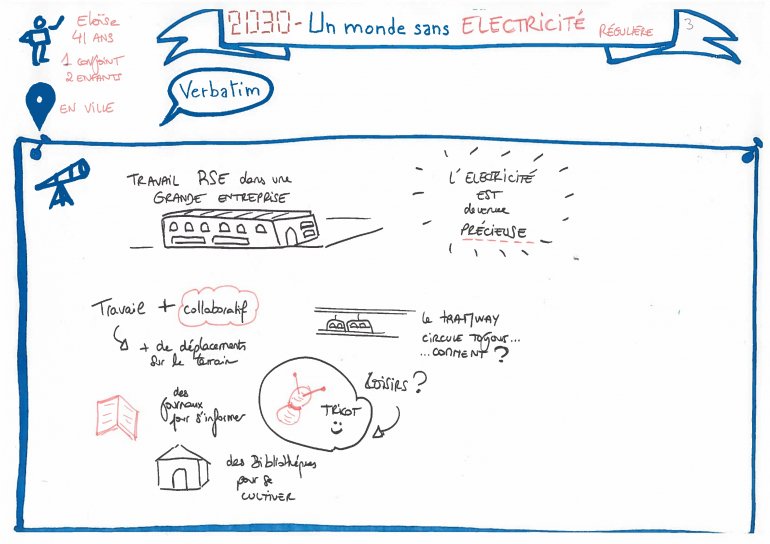 Eloïse
41 ANS
1 conjoint
2 ENFANTS
EN VILLE
2030 - Un monde sans ELECTRICITÉ RÉGULIÈRE
3
Verbatim
TRAVAIL RSE dans une
GRANDE ENTREPRISE
L'ELECTRICITÉ
EST
devenue
PRÉCIEUSE
Travail + collaboratif
+ de déplacements
sur le terrain
Le TRAMWAY
CIRCULE TOUJOURS...
...COMMENT ?
des
journaux
pour s'informer
LOISIRS ?
TRICOT
des Bibliothèques
pour se
CULTIVER